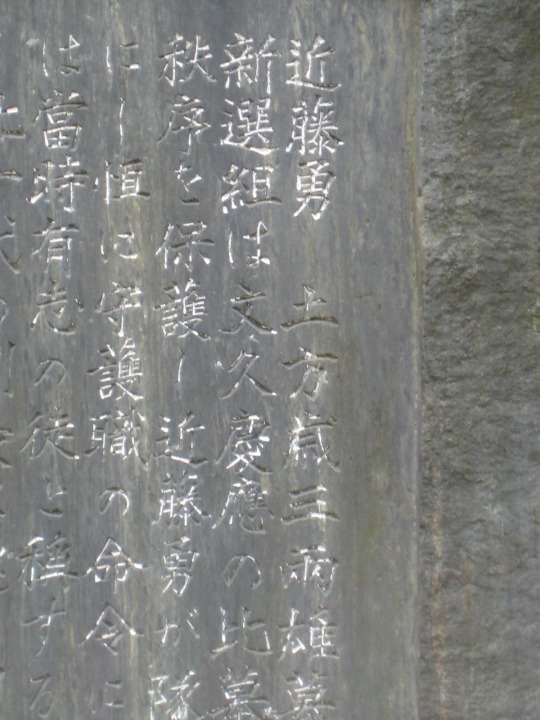 近藤勇 土方歳三両雄募
新選組は文久慶應の比幕
秩序を保護し近藤勇が隊
にし恒に守護職の命令に
は當時有志の徒と穪する